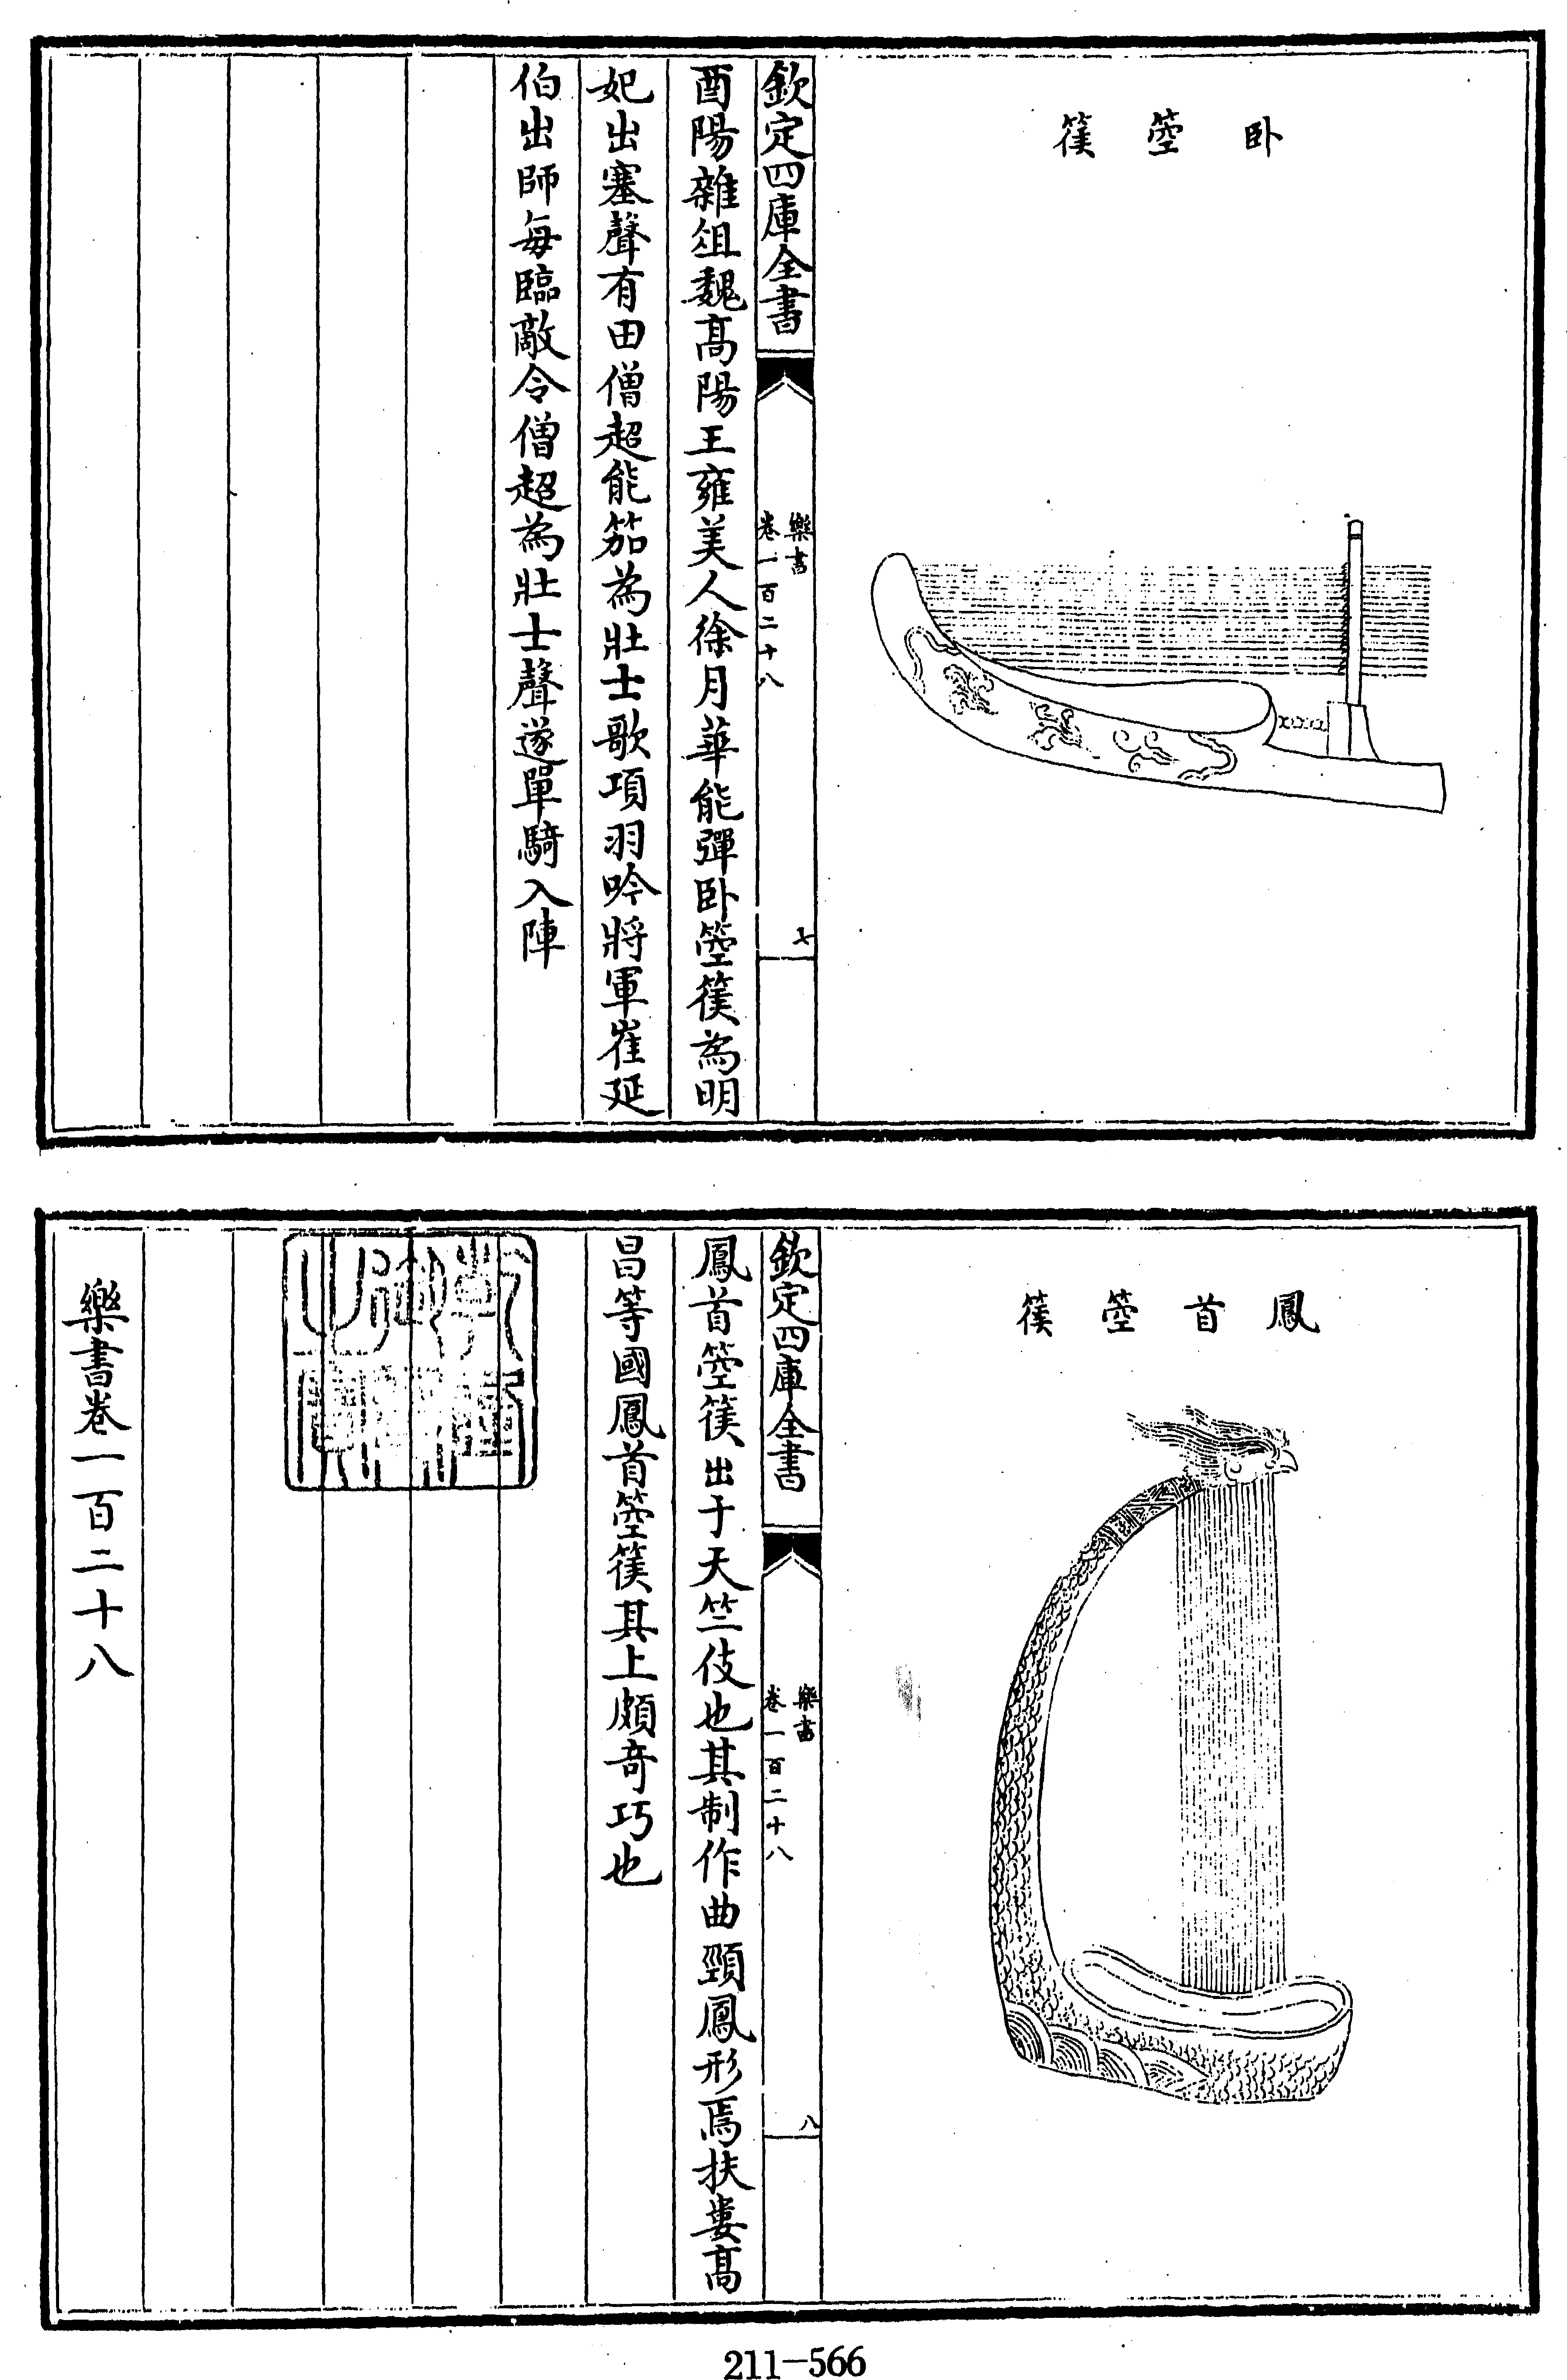 卧箜篌
欽定四庫全書
樂書
卷一百二十八
七
酉陽雜俎魏髙陽王雍美人徐月華能彈卧箜篌為明
妃出塞聲有田僧超能笳為壯士歌項羽吟將軍崔延
伯出師每臨敵令僧超為壯士聲遂單騎入陣
鳳首箜篌
欽定四庫全書
樂書
卷一百二十八
八
鳳首箜篌出于天竺伎也其制作曲頸鳳形焉扶婁髙
昌等國鳳首箜篌其上頗竒巧也
樂書卷一百二十八
211-566